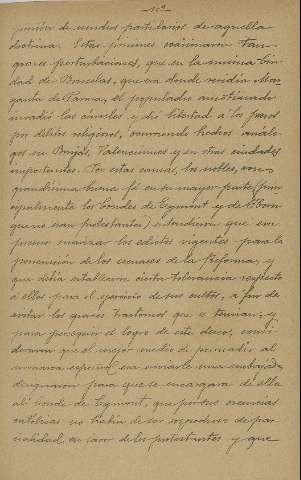 -10-
prisión de muchos partidarios de aquella
doctrina. Estas prisiones ocasionaron tan
graves perturbaciones, que en la misma Ciu-
dad de Bruselas, que era donde residía Mar-
garita de Parma, el populacho amotinado
invadió las cárceles y dió libertad a los presos
por delitos religiosos, ocurriendo hechos análo-
gos en Brujas, Valenciennes y en otras ciudades
importantes. Por estas causas, los nobles, con
grandísima buena fé en su mayor parte (prin
cipalmente los Condes de Egmont y de Horn
que no eran protestantes) entendieron que era
preciso suavizar los edictos vigentes para la
persecución de los secuaces de la Reforma, y
que debía establecerse cierta tolerancia respecto
á ellos para el ejercicio de sus cultos, a fin de
evitar los graves trastornos que se temían; y
para conseguir el logro de este deseo, consi-
deraron que el mejor medio de persuadir al
monarca español era enviarle una embajada,
designaron para que se encargara de ella
al Conde de Egmont, que por sus creencias
católicas no había de ser sospechoso de par-
cialidad en favor de los protestantes y que